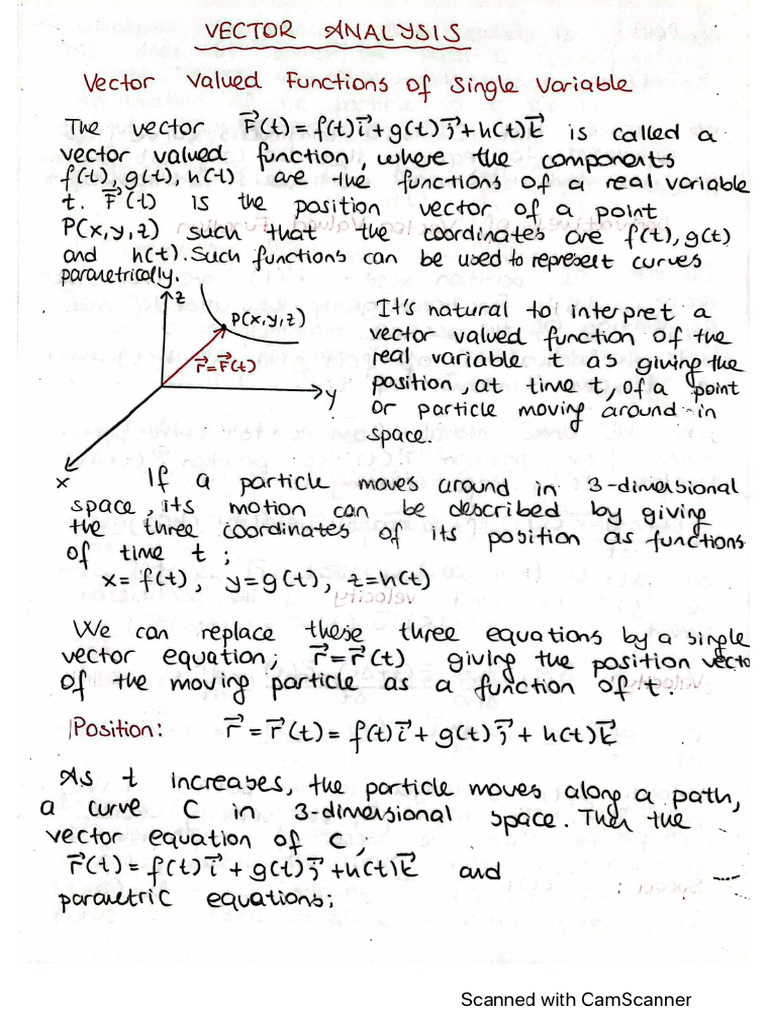 VECTOR ANALYSIS
Vector Valued Functions of Single Variable
The vector F⃗(t)=f(t)i⃗+g(t)j⃗+h(t)k⃗ is called a
vector valued function, where the components
f(t), g(t), h(t) are the functions of a real variable
t. F⃗(t) is the position vector of a point
P(x,y,z) such that the coordinates are f(t), g(t)
and h(t). Such functions can be used to represent curves
parametrically.
z
P(x,y,z)
r⃗=F⃗(t)
y
x
It's natural to interpret a
vector valued function of the
real variable t as giving the
position, at time t, of a point
or particle moving around in
space.
If a particle moves around in 3-dimensional
space, its motion can be described by giving
the three coordinates of its position as functions
of time t;
x= f(t), y=g(t), z=h(t)
We can replace these three equations by a single
vector equation; r⃗=r⃗(t) giving the position vecto
of the moving particle as a function of t.
Position: r⃗ = r⃗(t) = f(t)i⃗ + g(t)j⃗ + h(t)k⃗
As t increases, the particle moves along a path,
a curve C in 3-dimensional space. Then the
vector equation of C;
r⃗(t) = f(t)i⃗ + g(t)j⃗ +h(t)k⃗ and
parametric equations;
Scanned with CamScanner